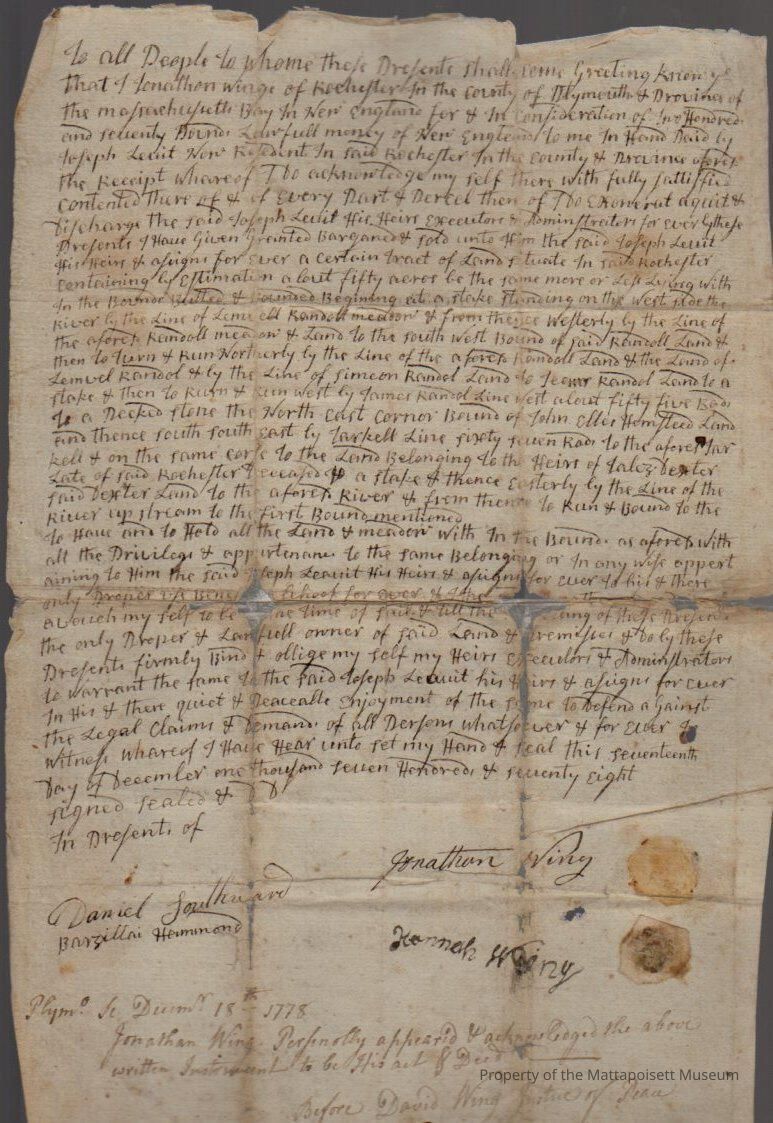 To all People to whome these Presents shall come Greeting Know ye
that I Jonathan winge of Rochester In the County of Plymouth & Province of
the massachusetts Bay In New England for & In Consideration of Two Hondred
and seventy Pounds Lawfull money of New England to me In Hand Paid by
Joseph Leuit Now Resedent In said Rochester In the County & Province afores
the Receipt whareof I Do acknowledge my self there with fully sattisfied
contented there of & of Every Part & Percel then of I Do Exonerat aquit &
Discharge the said Joseph Leuit His Heirs Executors & Adminstrators for Ever by these
Presents I Have Given Granted Barganed & sold unto Him the said Joseph Leuit
His Heirs & asigns for Ever a certain tract of Land situate In said Rochester
containing by Estimation about fifty acres be the same more or Less Lying with
In the Bounds Butted & Bounded Begining at a stake standing on the West side the
River by the Line of Lemuell Randoll meadow & from thence Westerly by the Line of
the afores Randoll meadow & Land to the south West Bound of said Randoll Land &
then to turn & Run Northerly by the Line of the afores Randoll Land & the Land of
Lemuel Randol & by the Line of simeon Randol Land to Randol Land to a
stake & then to Run & Run West by James Randol Line West about fifty five Rods
To a Pecked stone the North East Cornor Bound of John Elles Homsteed Land
and thence south south East by Tarkell Line sixty seven Rods to the afores Tar
kell & on the same corse to the Land Belonging to the Heirs of Dexter
Late of said Rochester Deceased to a stake & thence Easterly by the Line of the
said Dexter Land to the afores River & from thence to Run & Bound to the
River up stream to the first Bound mentioned
To Haue and to Hold all the Land & meadow with In the Bounds as afores with
all the Privilege & appurtenances to the same Belonging or In any wise appert
aining to Him the said Joseph Leauit His Heirs & asigns for ever to his & there
only Proper use Behoof for ever &
avouch my self to be time of sail & till the of these Presents
the only Proper & Lawfull owner of said Land & Premises & Do by these
Presents firmly Bind & oblige my self my Heirs Executors & Adminstrators
to warrant the same to the said Joseph Leauit his Heirs & asigns for ever
In His & there quiet & Peaceable Enjoyment of the same to Defend against
the Legal Claims & Demands of all Persons whatsoever & for Ever In
Witness whareof I Have Hear unto set my Hand & seal this seventeenth
Day of December one thousand seven Hondreds & seventy Eight
signed sealed & DD
In Presents of
Jonathan Wing
Daniel Southward
Barzillai Hammond
Hannah Wing
Plymo. Sc Decmr 18th 1778
Jonathan Wing Personolly appeard & acknowledged the above
written Instrument to be His act & Deed
Before David Wing Justice of Peace
Property of the Mattapoisett Museum